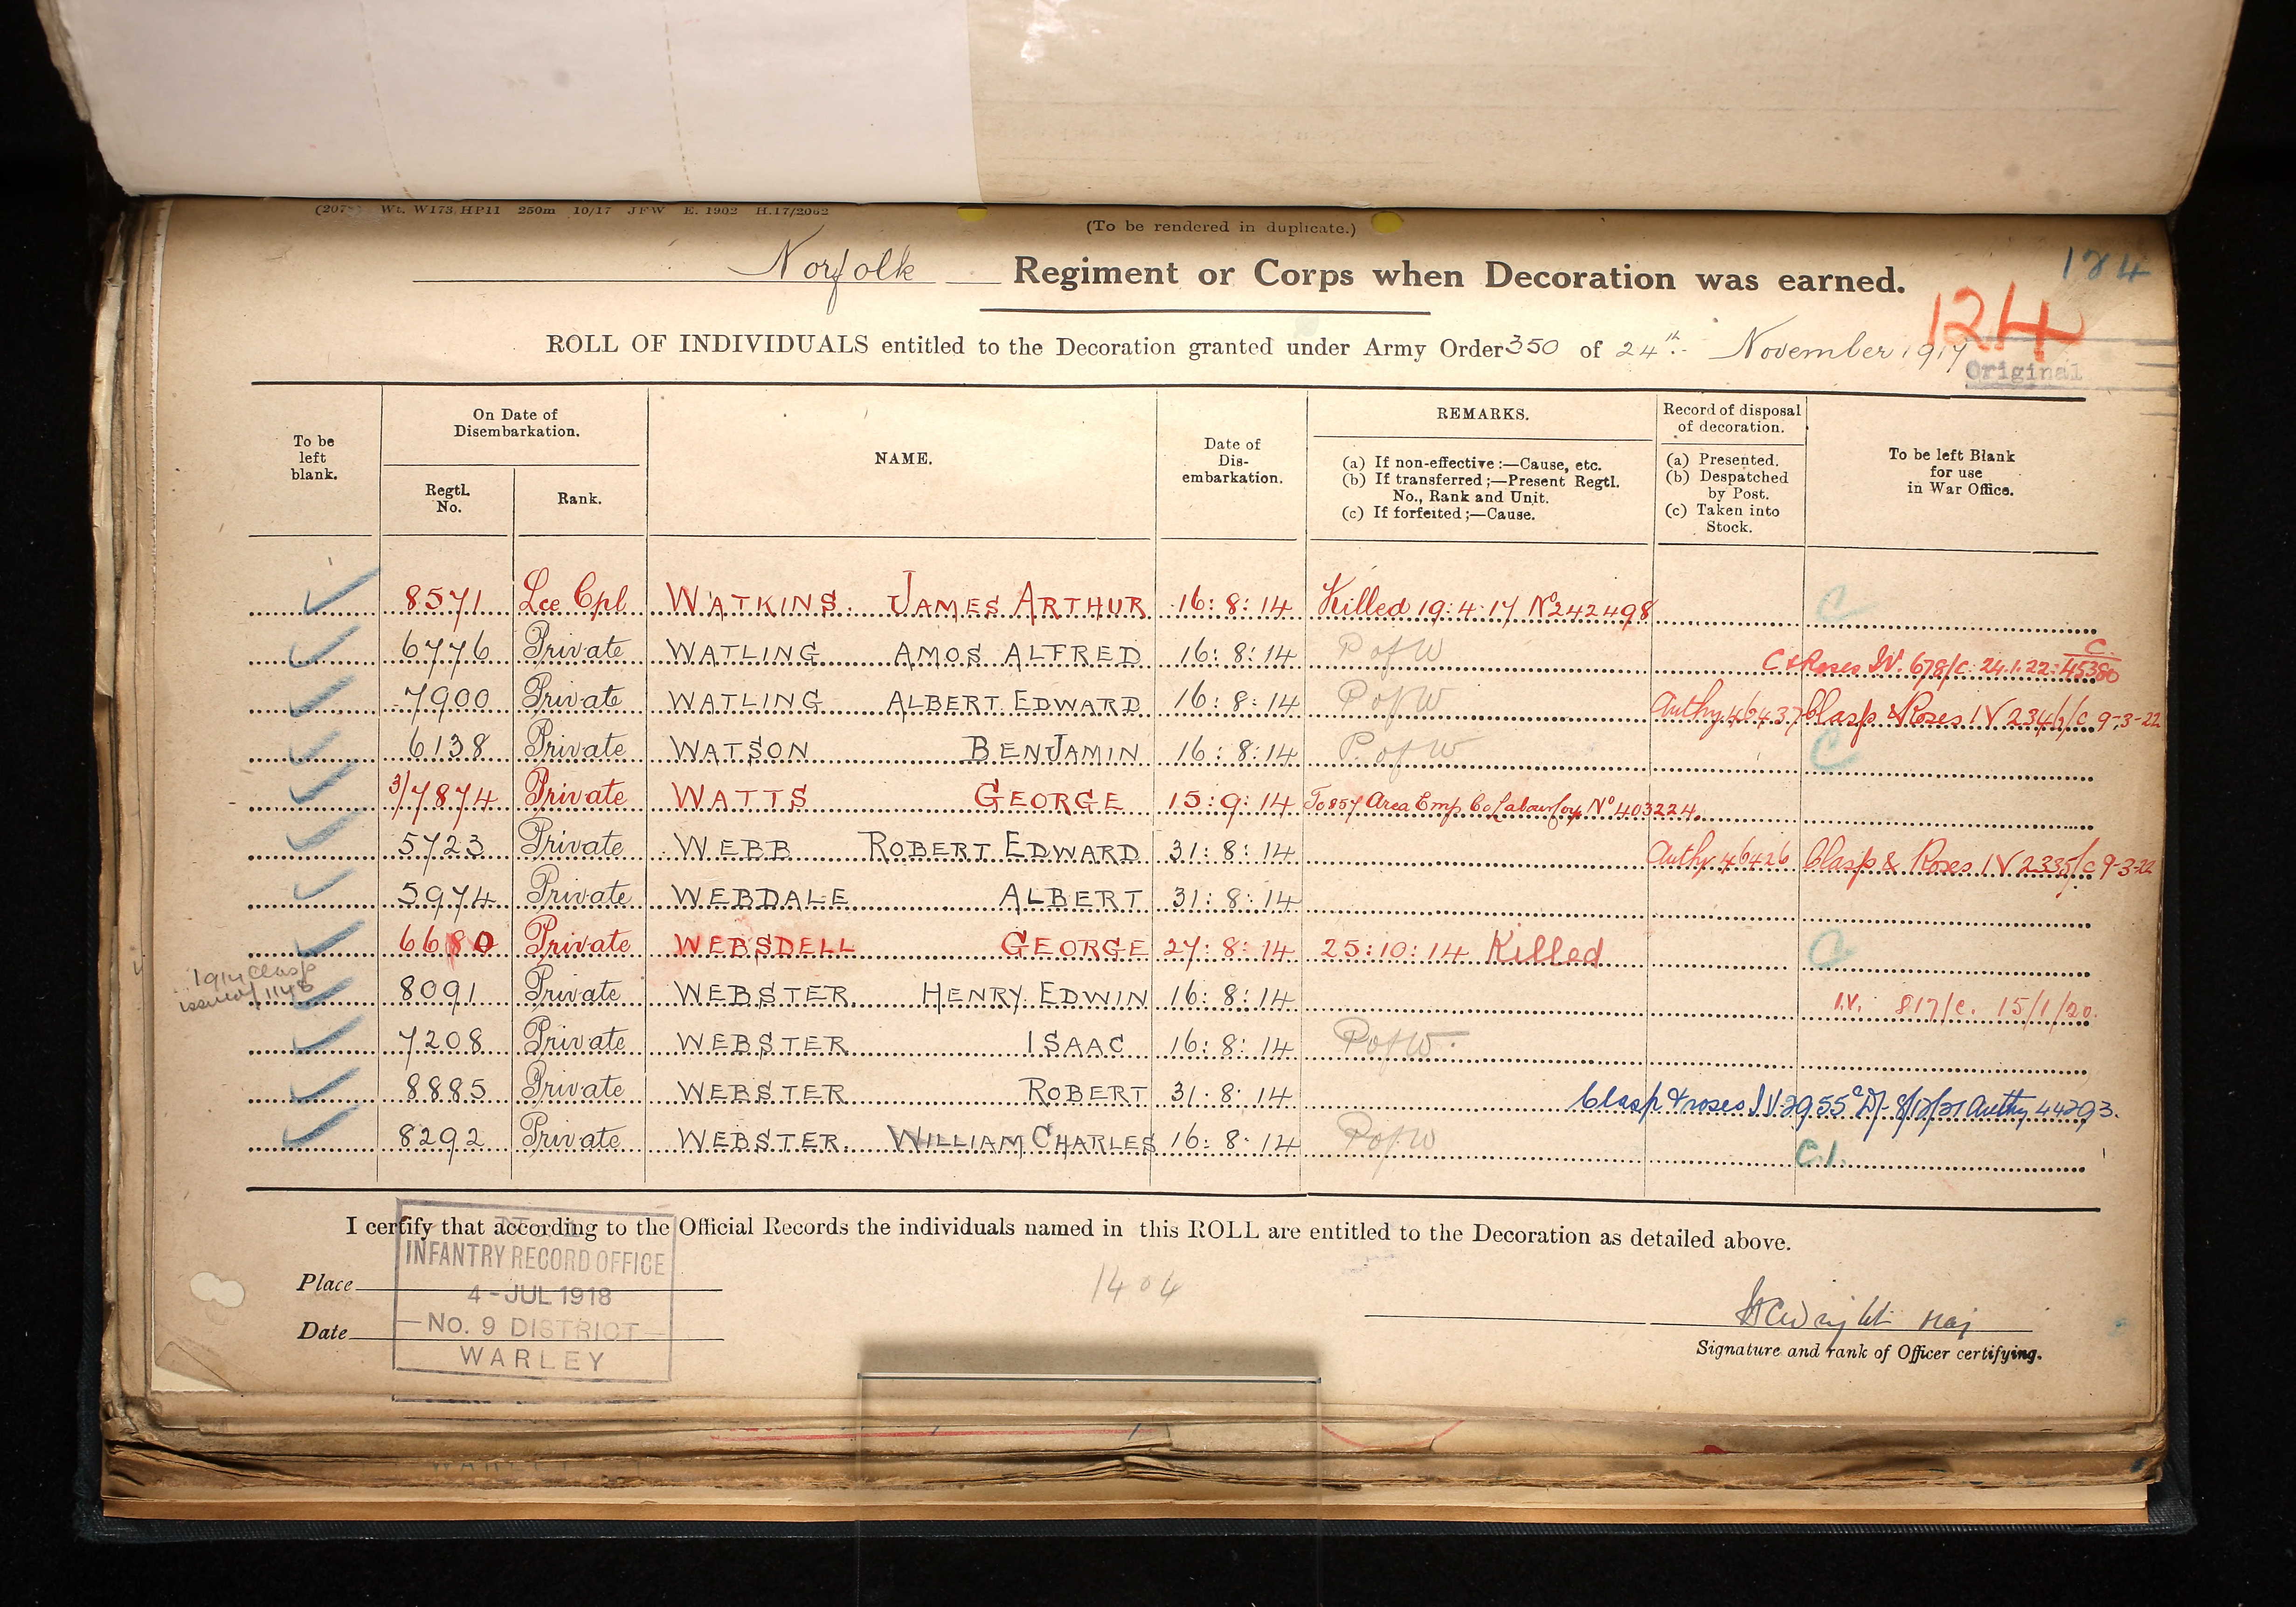 Wt. W173 HP11 250m 10/17 JFW E. 1902 H.17/2062
(To be rendered in duplicate.)
184
Norfolk Regiment or Corps when Decoration was earned.
124
ROLL OF INDIVIDUALS entitled to the Decoration granted under Army Order 350 of 24th November 1917
Original
To be left blank.
On Date of Disembarkation.
Regtl. No.
Rank.
NAME.
Date of Dis-embarkation.
REMARKS.
(a) If non-effective:—Cause, etc.
(b) If transferred;—Present Regtl. No., Rank and Unit.
(c) If forfeited;—Cause.
Record of disposal of decoration.
(a) Presented.
(b) Despatched by Post.
(c) Taken into Stock.
To be left Blank for use in War Office.
8571 Lce Cpl WATKINS. JAMES ARTHUR 16:8:14 Killed 19:4:17 No 242498 C
6776 Private WATLING AMOS ALFRED 16:8:14 P of W C & Roses IV. 678/C. 24.1.22. C. 45380
7900 Private WATLING ALBERT EDWARD 16:8:14 P of W Authy 46437 Clasp & Roses IV 234/2/C 9-3-22
6138 Private WATSON BENJAMIN 16:8:14 P. of W C
3/7874 Private WATTS GEORGE 15:9:14 To 857 Area Emp Co Labour Corp No 403224.
5723 Private WEBB ROBERT EDWARD 31:8:14 Authy 46426 Clasp & Roses IV 2335/C 9-3-22
5974 Private WEBDALE ALBERT 31:8:14
6680 Private WEBSDELL GEORGE 27:8:14 25:10:14 Killed C
1914 Clasp issued 1148
8091 Private WEBSTER HENRY EDWIN 16:8:14 I.V. 817/C. 15/1/20.
7208 Private WEBSTER ISAAC 16:8:14 P of W.
8885 Private WEBSTER ROBERT 31:8:14 Clasp & roses I.V. 2955 8/12/21 Authy 44293.
8292 Private WEBSTER. WILLIAM CHARLES 16:8:14 P of W C.1.
I certify that according to the Official Records the individuals named in this ROLL are entitled to the Decoration as detailed above.
INFANTRY RECORD OFFICE
Place
4-JUL 1918
1404
No. 9 DISTRICT
Date
WARLEY
Wright Maj
Signature and rank of Officer certifying.